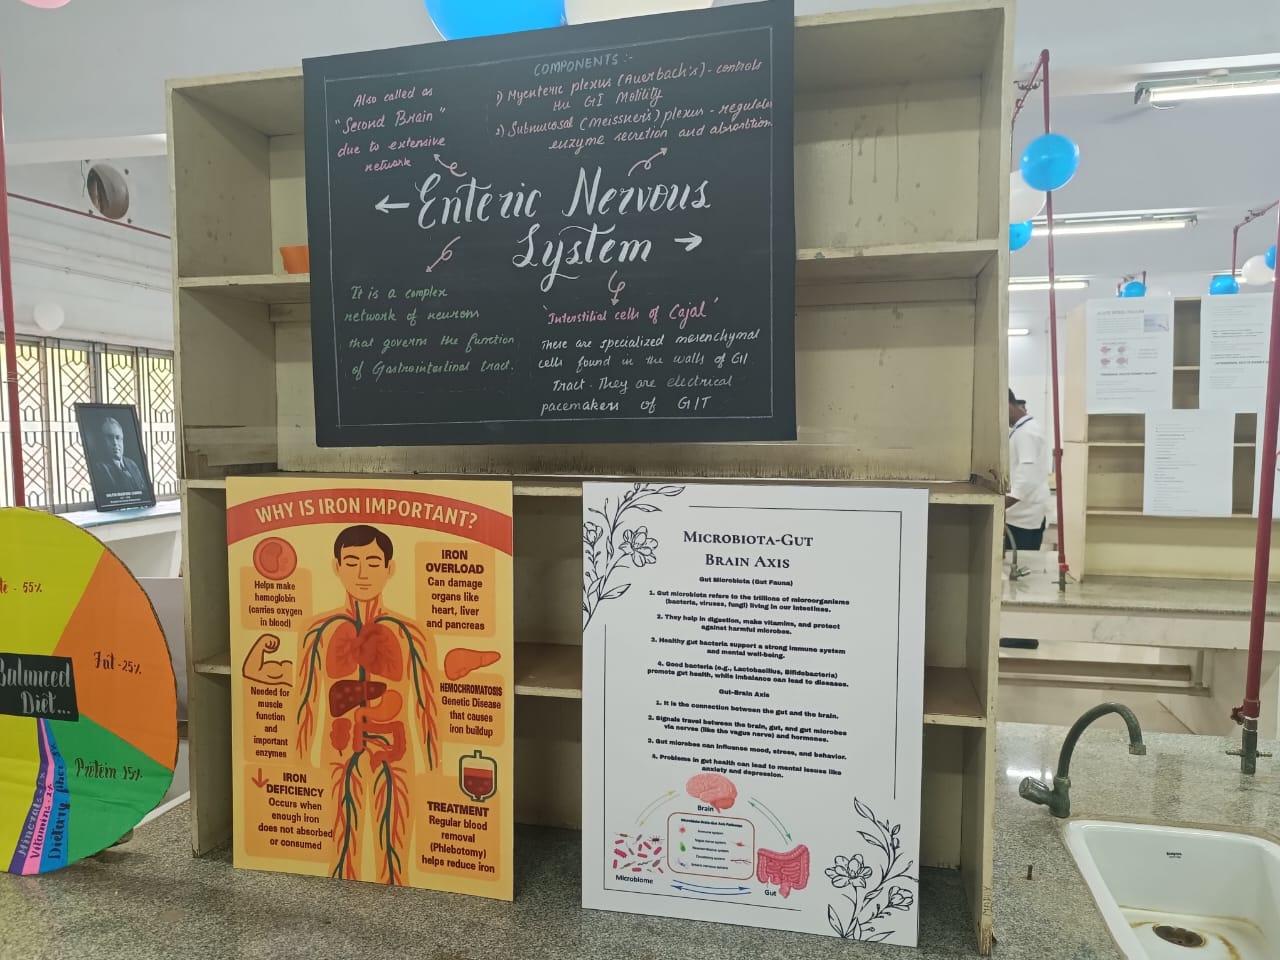 COMPONENTS :-
Also called as
"Second Brain"
due to extensive
network
1) Myenteric plexus (Auerbach's) - controls
the GI Motility
2) Submucosal (Meissner's) plexus - regulates
enzyme secretion and absorption
Enteric Nervous
System
It is a complex
network of neurons
that governs the function
of Gastrointestinal tract.
'Interstitial cells of Cajal'
These are specialized mesenchymal
cells found in the walls of GI
Tract. They are electrical
pacemakers of GIT
WHY IS IRON IMPORTANT?
Helps make
hemoglobin
(carries oxygen
in blood)
Needed for
muscle
function
and
important
enzymes
IRON
DEFICIENCY
Occurs when
enough iron
does not absorbed
or consumed
IRON
OVERLOAD
Can damage
organs like
heart, liver
and pancreas
HEMOCHROMATOSIS
Genetic Disease
that causes
iron buildup
TREATMENT
Regular blood
removal
(Phlebotomy)
helps reduce iron
MICROBIOTA-GUT
BRAIN AXIS
Gut Microbiota (Gut Fauna)
1. Gut microbiota refers to the trillions of microorganisms
(bacteria, viruses, fungi) living in our intestines.
2. They help in digestion, make vitamins, and protect
against harmful microbes.
3. Healthy gut bacteria support a strong immune system
and mental well-being.
4. Good bacteria (e.g., Lactobacillus, Bifidobacteria)
promote gut health, while imbalance can lead to diseases.
Gut-Brain Axis
1. It is the connection between the gut and the brain.
2. Signals travel between the brain, gut, and gut microbes
via nerves (like the vagus nerve) and hormones.
3. Gut microbes can influence mood, stress, and behavior.
4. Problems in gut health can lead to mental issues like
anxiety and depression.
Brain
Microbiome
Gut
- 55%
Fat - 25%
Balanced
Diet...
Protein 15%
Minerals
Vitamins
Dietary fiber